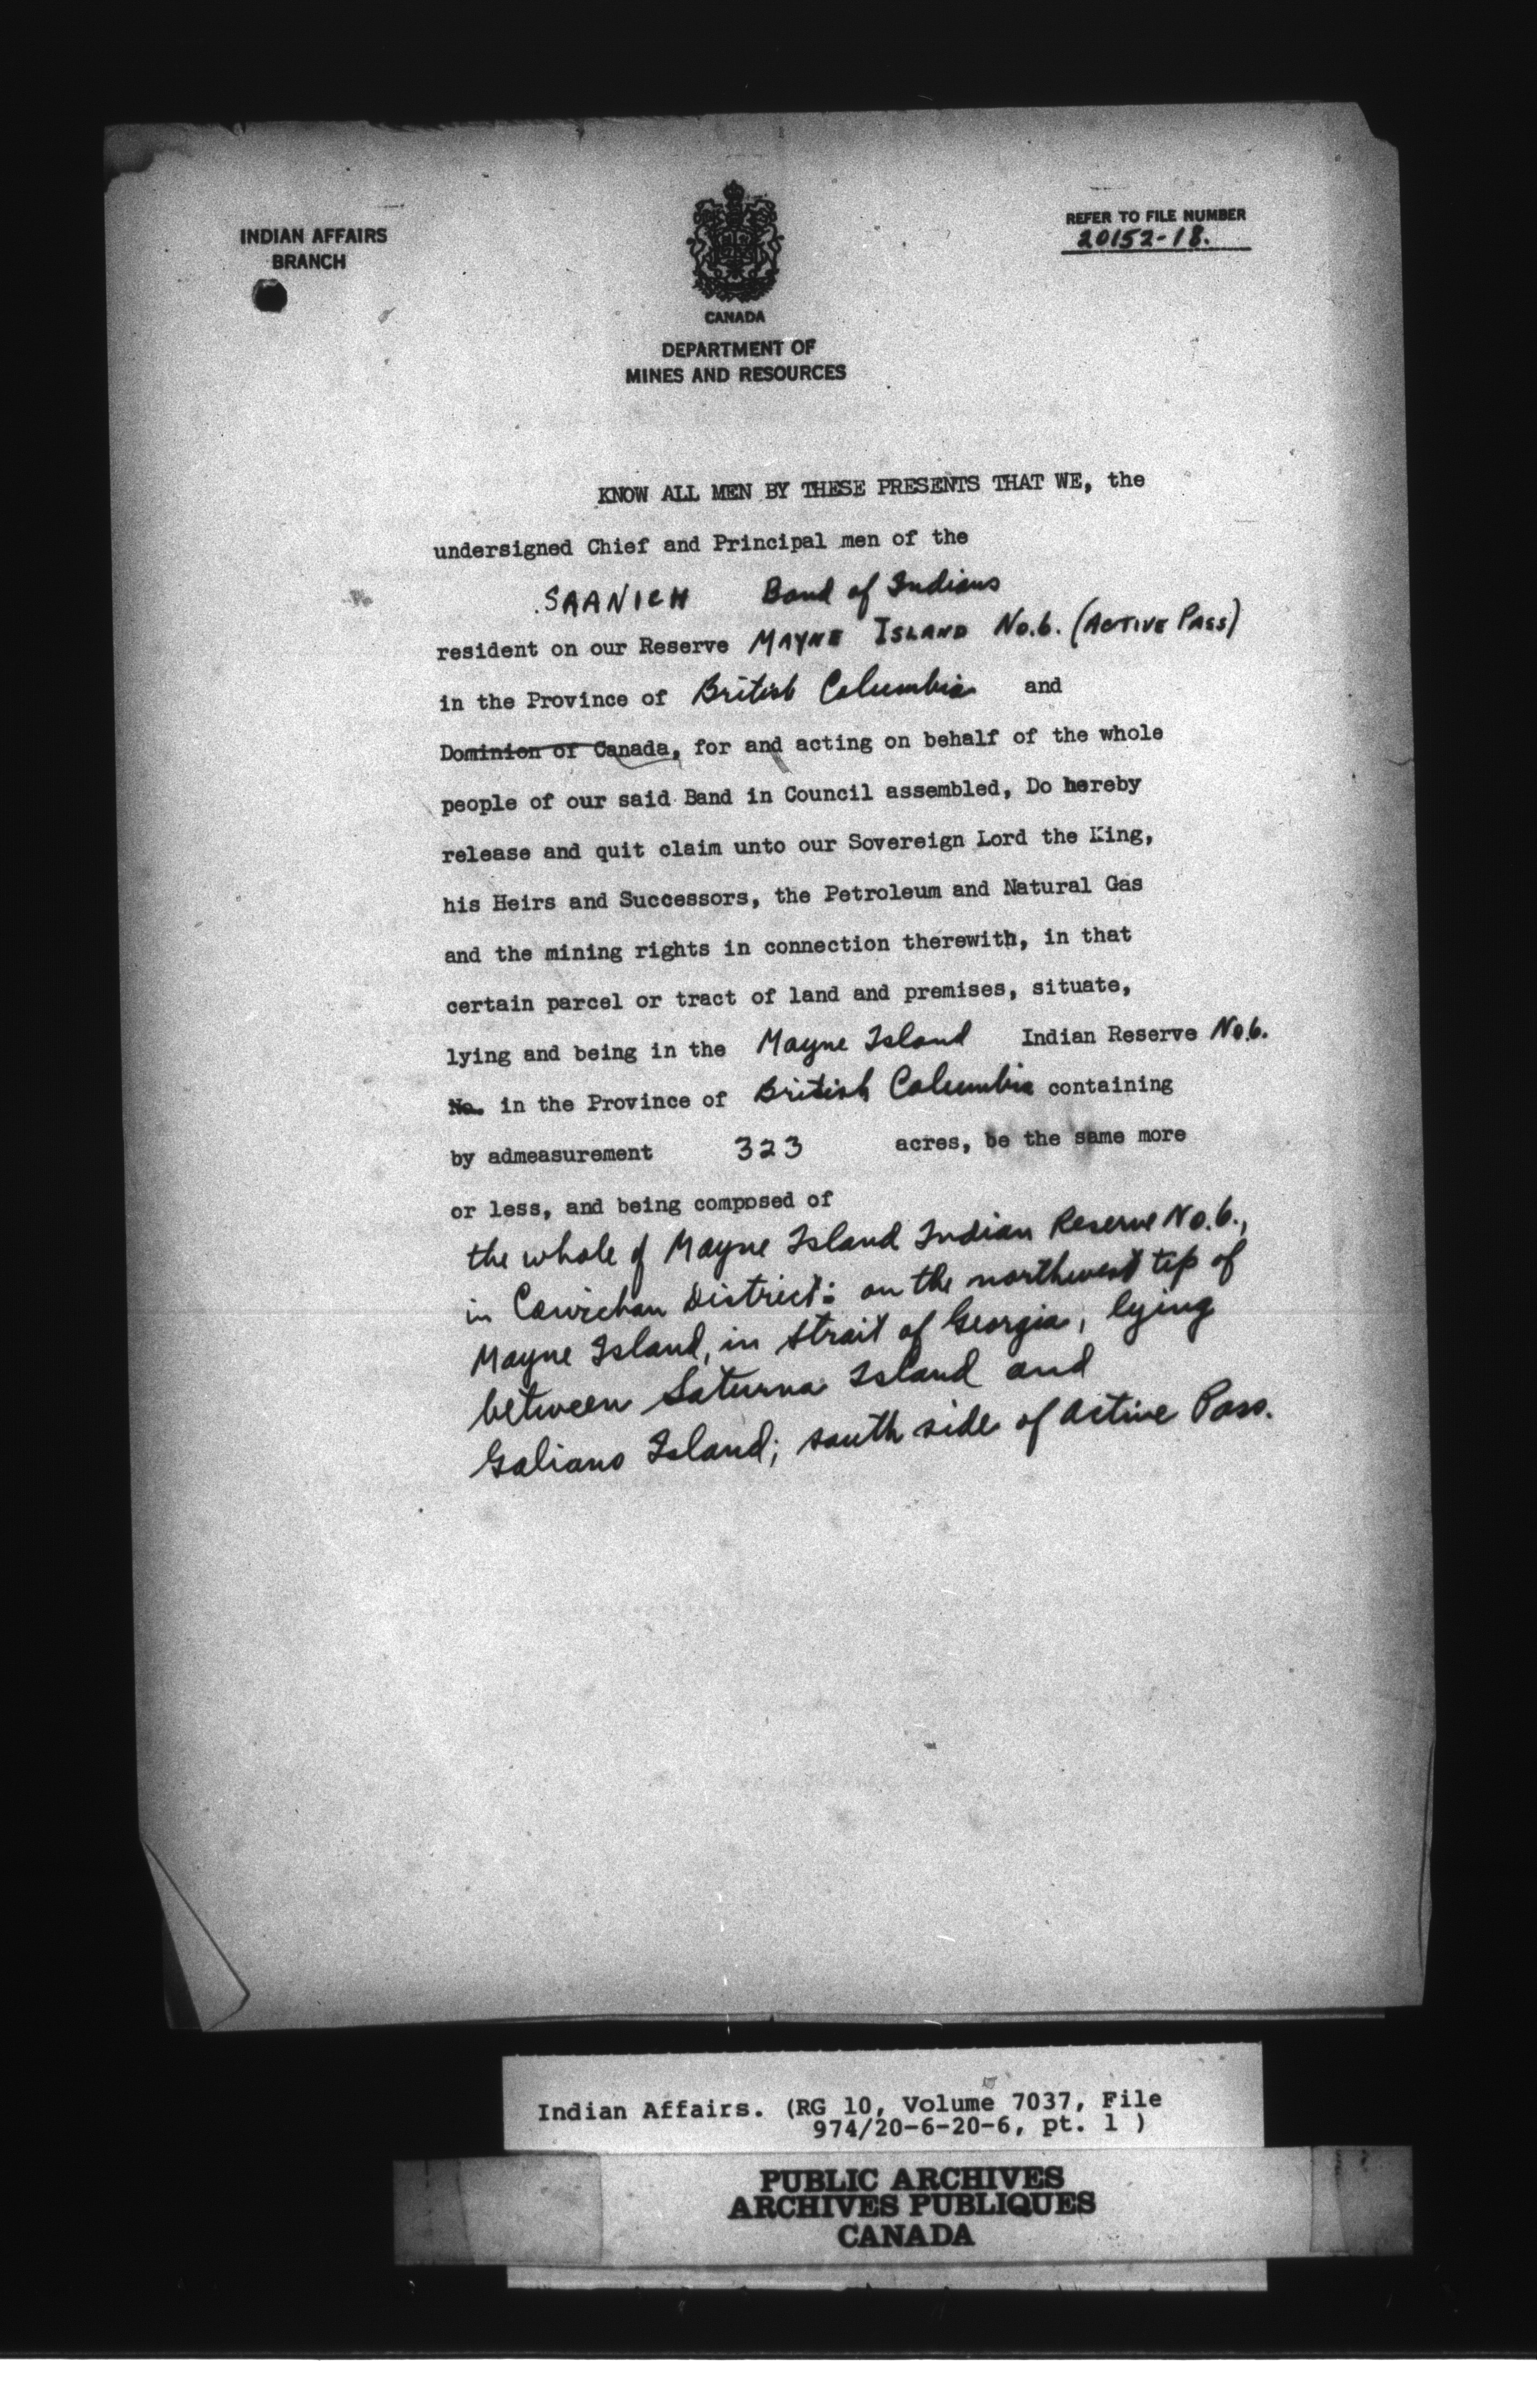 INDIAN AFFAIRS
BRANCH
CANADA
DEPARTMENT OF
MINES AND RESOURCES
REFER TO FILE NUMBER
20152-18.
KNOW ALL MEN BY THESE PRESENTS THAT WE, the
undersigned Chief and Principal men of the
SAANICH Band of Indians
resident on our Reserve MAYNE ISLAND No.6. (ACTIVE PASS)
in the Province of British Columbia and
Dominion of Canada, for and acting on behalf of the whole
people of our said Band in Council assembled, Do hereby
release and quit claim unto our Sovereign Lord the King,
his Heirs and Successors, the Petroleum and Natural Gas
and the mining rights in connection therewith, in that
certain parcel or tract of land and premises, situate,
lying and being in the Mayne Island Indian Reserve No.6.
No. in the Province of British Columbia containing
by admeasurement 323 acres, be the same more
or less, and being composed of
the whole of Mayne Island Indian Reserve No.6.,
in Cowichan District: on the northwest tip of
Mayne Island, in Strait of Georgia, lying
between Saturna Island and
Galiano Island; south side of Active Pass.
Indian Affairs. (RG 10, Volume 7037, File
974/20-6-20-6, pt. 1 )
PUBLIC ARCHIVES
ARCHIVES PUBLIQUES
CANADA